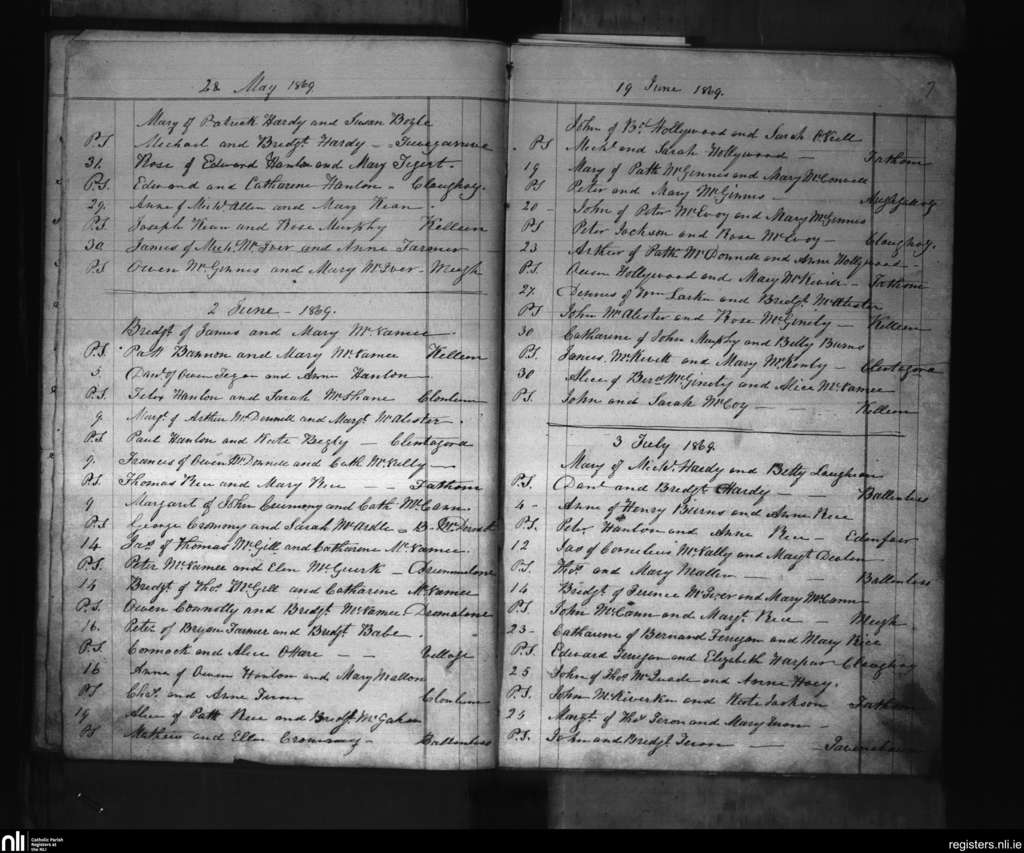 28 May 1869
Mary of Patrick Hardy and Susan Boyle
P.S Michael and Bridgt. Hardy –
31. Rose of Edward Hanlon and Mary Tegert.
P.S. Edward and Catharine Hanlon - Claughoy.
29. Anne of Michl. Allen and Mary Kean
P.S Joseph Kean and Rose Murphy Killeen
30 James of Mich. McIver and Anne Farmer
P.S Owen McGinnes and Mary McIver – Meigh
2 June – 1869.
Bridgt. of James and Mary McNamee
P.S. Patt Bannon and Mary McNamee Killeen
3. Danl. of Owen Fegan and Anne Hanlon
P.S. Peter Hanlon and Sarah McShane Clonlum
9. Margt. of Arthur McDonnell and Margt. McAlister.
P.S Paul Hanlon and Kate Begly – Clontagora
9. Francis of Owen McDonnell and Cath McNally –
P.S. Thomas Rice and Mary Rice – – Fathom
9 Margaret of John Cummony and Cath McCann.
P.S George Cromony and Sarah McArdle – B. McDermott
14. Jas. of Thomas McGill and Catharine McNamee.
P.S. Peter McNamee and Elen McGuirk – Drummalane
14 Bridgt. of Thos. McGill and Catharine McNamee
P.S. Owen Connolly and Bridgt. McNamee Dromalane
16. Peter of Bryan Farmer and Bridgt. Babe.
P.S. Cormack and Alice OHare – – Village
16 Anne of Owen Hanlon and Mary Mallon
P.S Chas. and Anne Feron Clonlum
19 Alice of Patt Rice and Bridgt McGahan
P.S Mathew and Ellen Cromony – Ballenless
19 June 1869.
7
John of Bd. Hollywood and Sarah OKell
P.S Michl. and Sarah Hollywood – Fathom
19 Mary of Patk McGinnis and Mary McConnell
P.S Peter and Mary McGinnis –
20 – John of Peter McEvoy and Mary McGinnis
P.S Peter Jackson and Rose McEvoy – Claughoy.
23 Arthur of Patk McDonnell and Anne Hollywood –
P.S. Owen Hollywood and Mary McKevier – Fathom
27. Dennis of Wm Larkin and Bridgt. McAlister
P.S John McAlister and Rose McGinity – Killeen
30. Catharine of John Murphy and Betty Burns
P.S. James McKevitt and Mary McKenly – Clontagora
30 Alice of Bernd. McGinity and Alice McNamee
P.S. John and Sarah McCoy – – Killeen
3 July 1869.
Mary of Michl. Hardy and Betty Laughran
P.S. Danl. and Bridgt. Hardy – – Ballenless
4 – Anne of Henry Burns and Anne Rice
P.S. Peter Hanlon and Anne Rice – Edenfair
12 Jas of Cornelius McNally and Margt Declan
P.S. Thos. and Mary Mallen – – Ballenless
14 Bridgt of Terence McIver and Mary McCann
P.S. John McCann and Margt. Rice – Meigh
23 – Catharine of Bernard Ferrigan and Mary Rice
P.S. Edward Ferrigan and Elizabeth Harper Claughoy
25 John of Thos McQuade and Anne Hoey.
P.S. John McKiverkin and Kate Jackson Fathom
25 Margt. of Thos Feron and Mary
P.S. John and Bridgt. Feron – –
nli Catholic Parish Registers at the NLI
registers.nli.ie